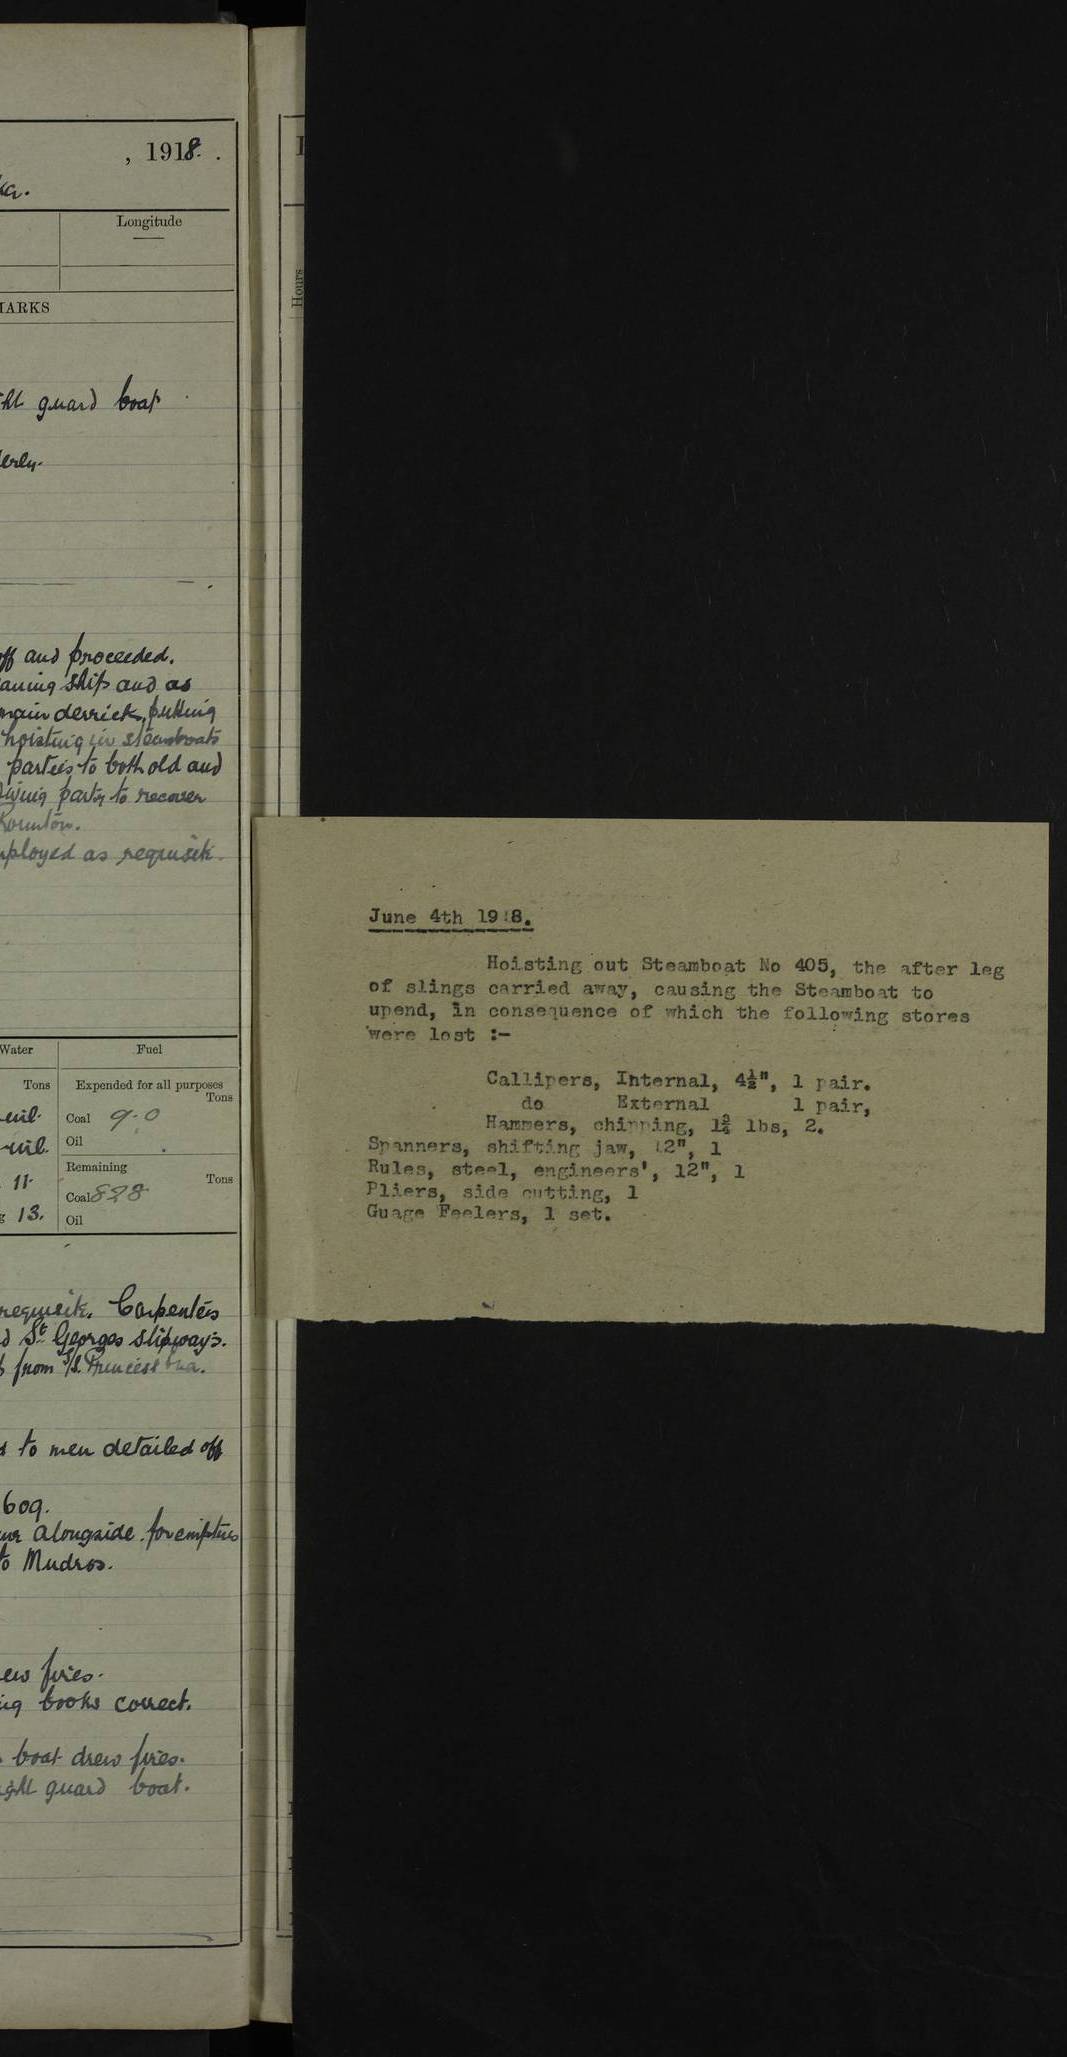 , 1918. .
Longitude
MARKS
guard boat
off and proceeded.
ship and as
main derrick, putting
hoisting in steamboats
parties to both old and
party to recover
as requisite.
Water
Fuel
Tons
Expended for all purposes
Tons
nil.
Coal 9.0
nil.
Oil
Remaining
11.
Tons
Coal 828
13.
Oil
requisite. Carpenters
St Georges slipways.
from S/S. Princess Ena.
to men detailed off
609.
alongside for empties
to Mudros.
fires.
books correct.
boat drew fires.
guard boat.
Hours
June 4th 1918.
Hoisting out Steamboat No 405, the after leg
of slings carried away, causing the Steamboat to
upend, in consequence of which the following stores
were lost :-
Callipers, Internal, 4½", 1 pair.
do External 1 pair,
Hammers, chipping, 1¾ lbs, 2.
Spanners, shifting jaw, 12", 1
Rules, steel, engineers', 12", 1
Pliers, side cutting, 1
Guage Feelers, 1 set.